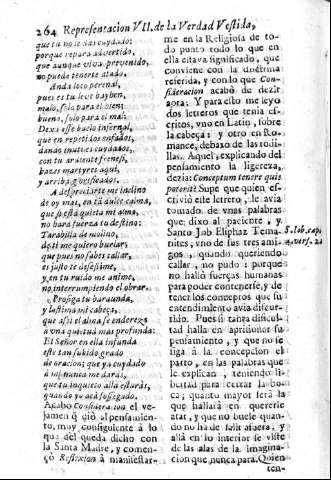 264 Representacion VII. de la Verdad Vestida,
que tu no le das cuydado:
porque repara advertido,
que aunque viva prevenido,
no puede tenerte atado.
Anda loco perenal,
pues es tu leve bayben,
malo, solo para el bien;
bueno, solo para el mal:
Dexa esse bacio infernal,
que en repetidos enfados,
dando inutiles cuydados,
con tu ardiente frenesi,
hazes martyres aqui,
y arriba glorificados.
A despreciarte me inclino
de oy mas, en tu dulce calma,
que si està quieta mi alma,
no harà fuerza tu destino:
Tarabilla de molino,
de ti me quiero burlar;
que pues no sabes callar,
es justo te desestime,
y en tu ruido me anime,
no interrumpiendo el obrar.
Prosiga tu baraunda,
y lastima mi cabeça,
que assi el alma se endereça
à una quietud mas profunda:
El Señor en ella infunda
este tan subido grado
de oracion; que ya cuydado
à mi nunca me daràs,
que tu inquieto allà estaràs,
quando yo acà sossegado.
Acabò Consideracion el vejamen
que diò al pensamiento,
muy consiguiente à lo
que del queda dicho con
la Santa Madre, y començò
Reflexion à manifestarme
en la Religiosa de todo
punto todo lo que en
ella estava significado, que
conviene con la doctrina
referida, y con lo que Consideracion
acabò de dezir
aora: Y para esto me leyò
dos letreros que tenia escritos,
uno en Latin, sobre
la cabeça: y otro en Romance,
debaxo de las rodillas.
Aquel, explicando del
pensamiento la ligereza,
dezia: Conceptum tenere quis
poterit? Supe que quien escriviò
este letrero, le avia
tomado de unas palabras
que dixo al paciente, y
Santo Job Eliphaz Temanites,
uno de sus tres amigos,
quando queriendo
callar, no pudo: porque
no hallò fuerças humanas
para poder contenerse, y de
tener los conceptos que su
entendimiento avia discurrido.
Pues si tanta dificultad
halla en aprisionar su
pensamiento, y que no se
siga à la concepcion el
parto, en las palabras que
le explican, teniendo libertad
para cerrar la boca;
quanto mayor serà la
que hallarà en quererle
atar, y que no buele quando
no ha de salir afuera; y
allà en lo interior se viste
de las alas de la imaginacion
que nunca para. Quien
ten-
S. Iob. cap.
4. vers. 2.